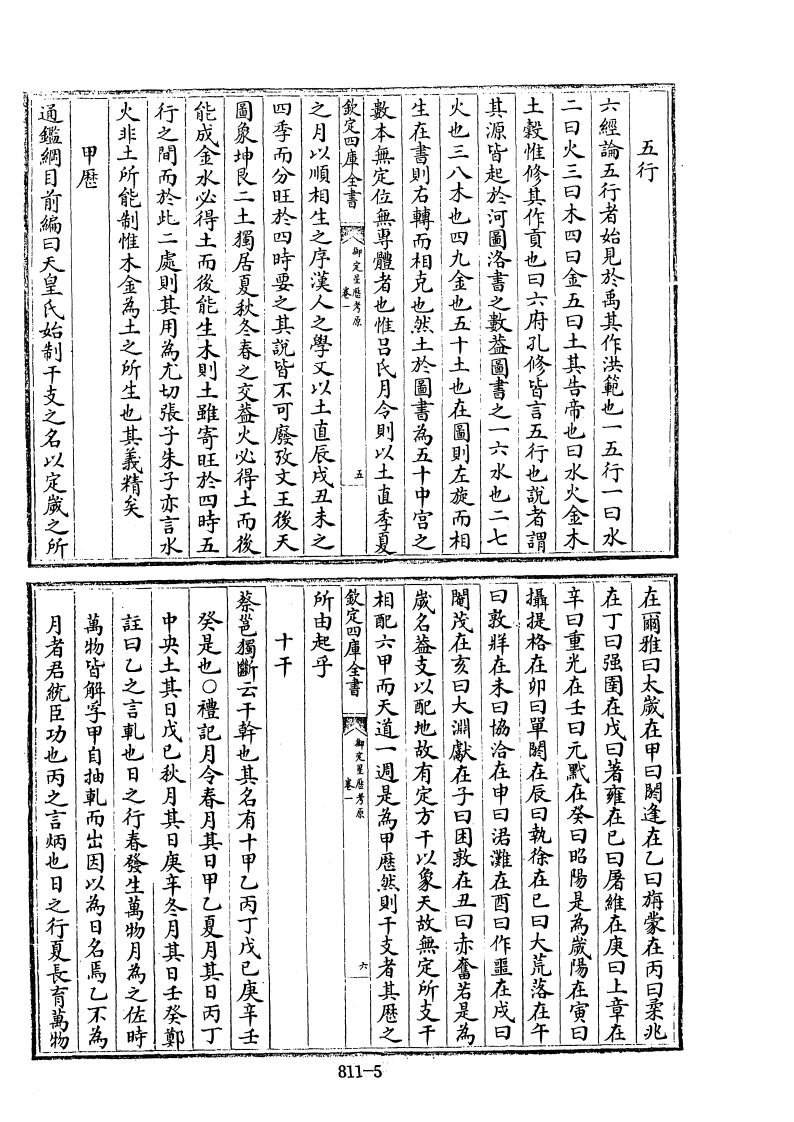 五行
六經論五行者始見於禹其作洪範也一五行一曰水
二曰火三曰木四曰金五曰土其告帝也曰水火金木
土穀惟修其作貢也曰六府孔修皆言五行也說者謂
其源皆起於河圖洛書之數葢圖書之一六水也二七
火也三八木也四九金也五十土也在圖則左旋而相
生在書則右轉而相克也然土於圖書為五十中宮之
數本無定位無專體者也惟吕氏月令則以土直季夏
欽定四庫全書
御定星歷考原
卷一
五
之月以順相生之序漢人之學又以土直辰戌丑未之
四季而分旺於四時要之其說皆不可廢攷文王後天
圖象坤艮二土獨居夏秋冬春之交葢火必得土而後
能成金水必得土而後能生木則土雖寄旺於四時五
行之間而於此二處則其用為尤切張子朱子亦言水
火非土所能制惟木金為土之所生也其義精矣
甲歷
通鑑綱目前編曰天皇氏始制干支之名以定嵗之所
在爾雅曰太嵗在甲曰閼逢在乙曰旃蒙在丙曰柔兆
在丁曰强圉在戊曰著雍在巳曰屠維在庚曰上章在
辛曰重光在壬曰元黓在癸曰昭陽是為嵗陽在寅曰
攝提格在卯曰單閼在辰曰執徐在巳曰大荒落在午
曰敦牂在未曰協洽在申曰涒灘在酉曰作噩在戌曰
閹茂在亥曰大淵獻在子曰困敦在丑曰赤奮若是為
嵗名葢支以配地故有定方干以象天故無定所支干
相配六甲而天道一週是為甲歷然則干支者其歷之
欽定四庫全書
御定星歷考原
卷一
六
所由起乎
十干
蔡邕獨斷云干幹也其名有十甲乙丙丁戊巳庚辛壬
癸是也○禮記月令春月其日甲乙夏月其日丙丁
中央土其日戊巳秋月其日庚辛冬月其日壬癸鄭
註曰乙之言軋也日之行春發生萬物月為之佐時
萬物皆解孚甲自抽軋而出因以為日名焉乙不為
月者君統臣功也丙之言炳也日之行夏長育萬物
811-5